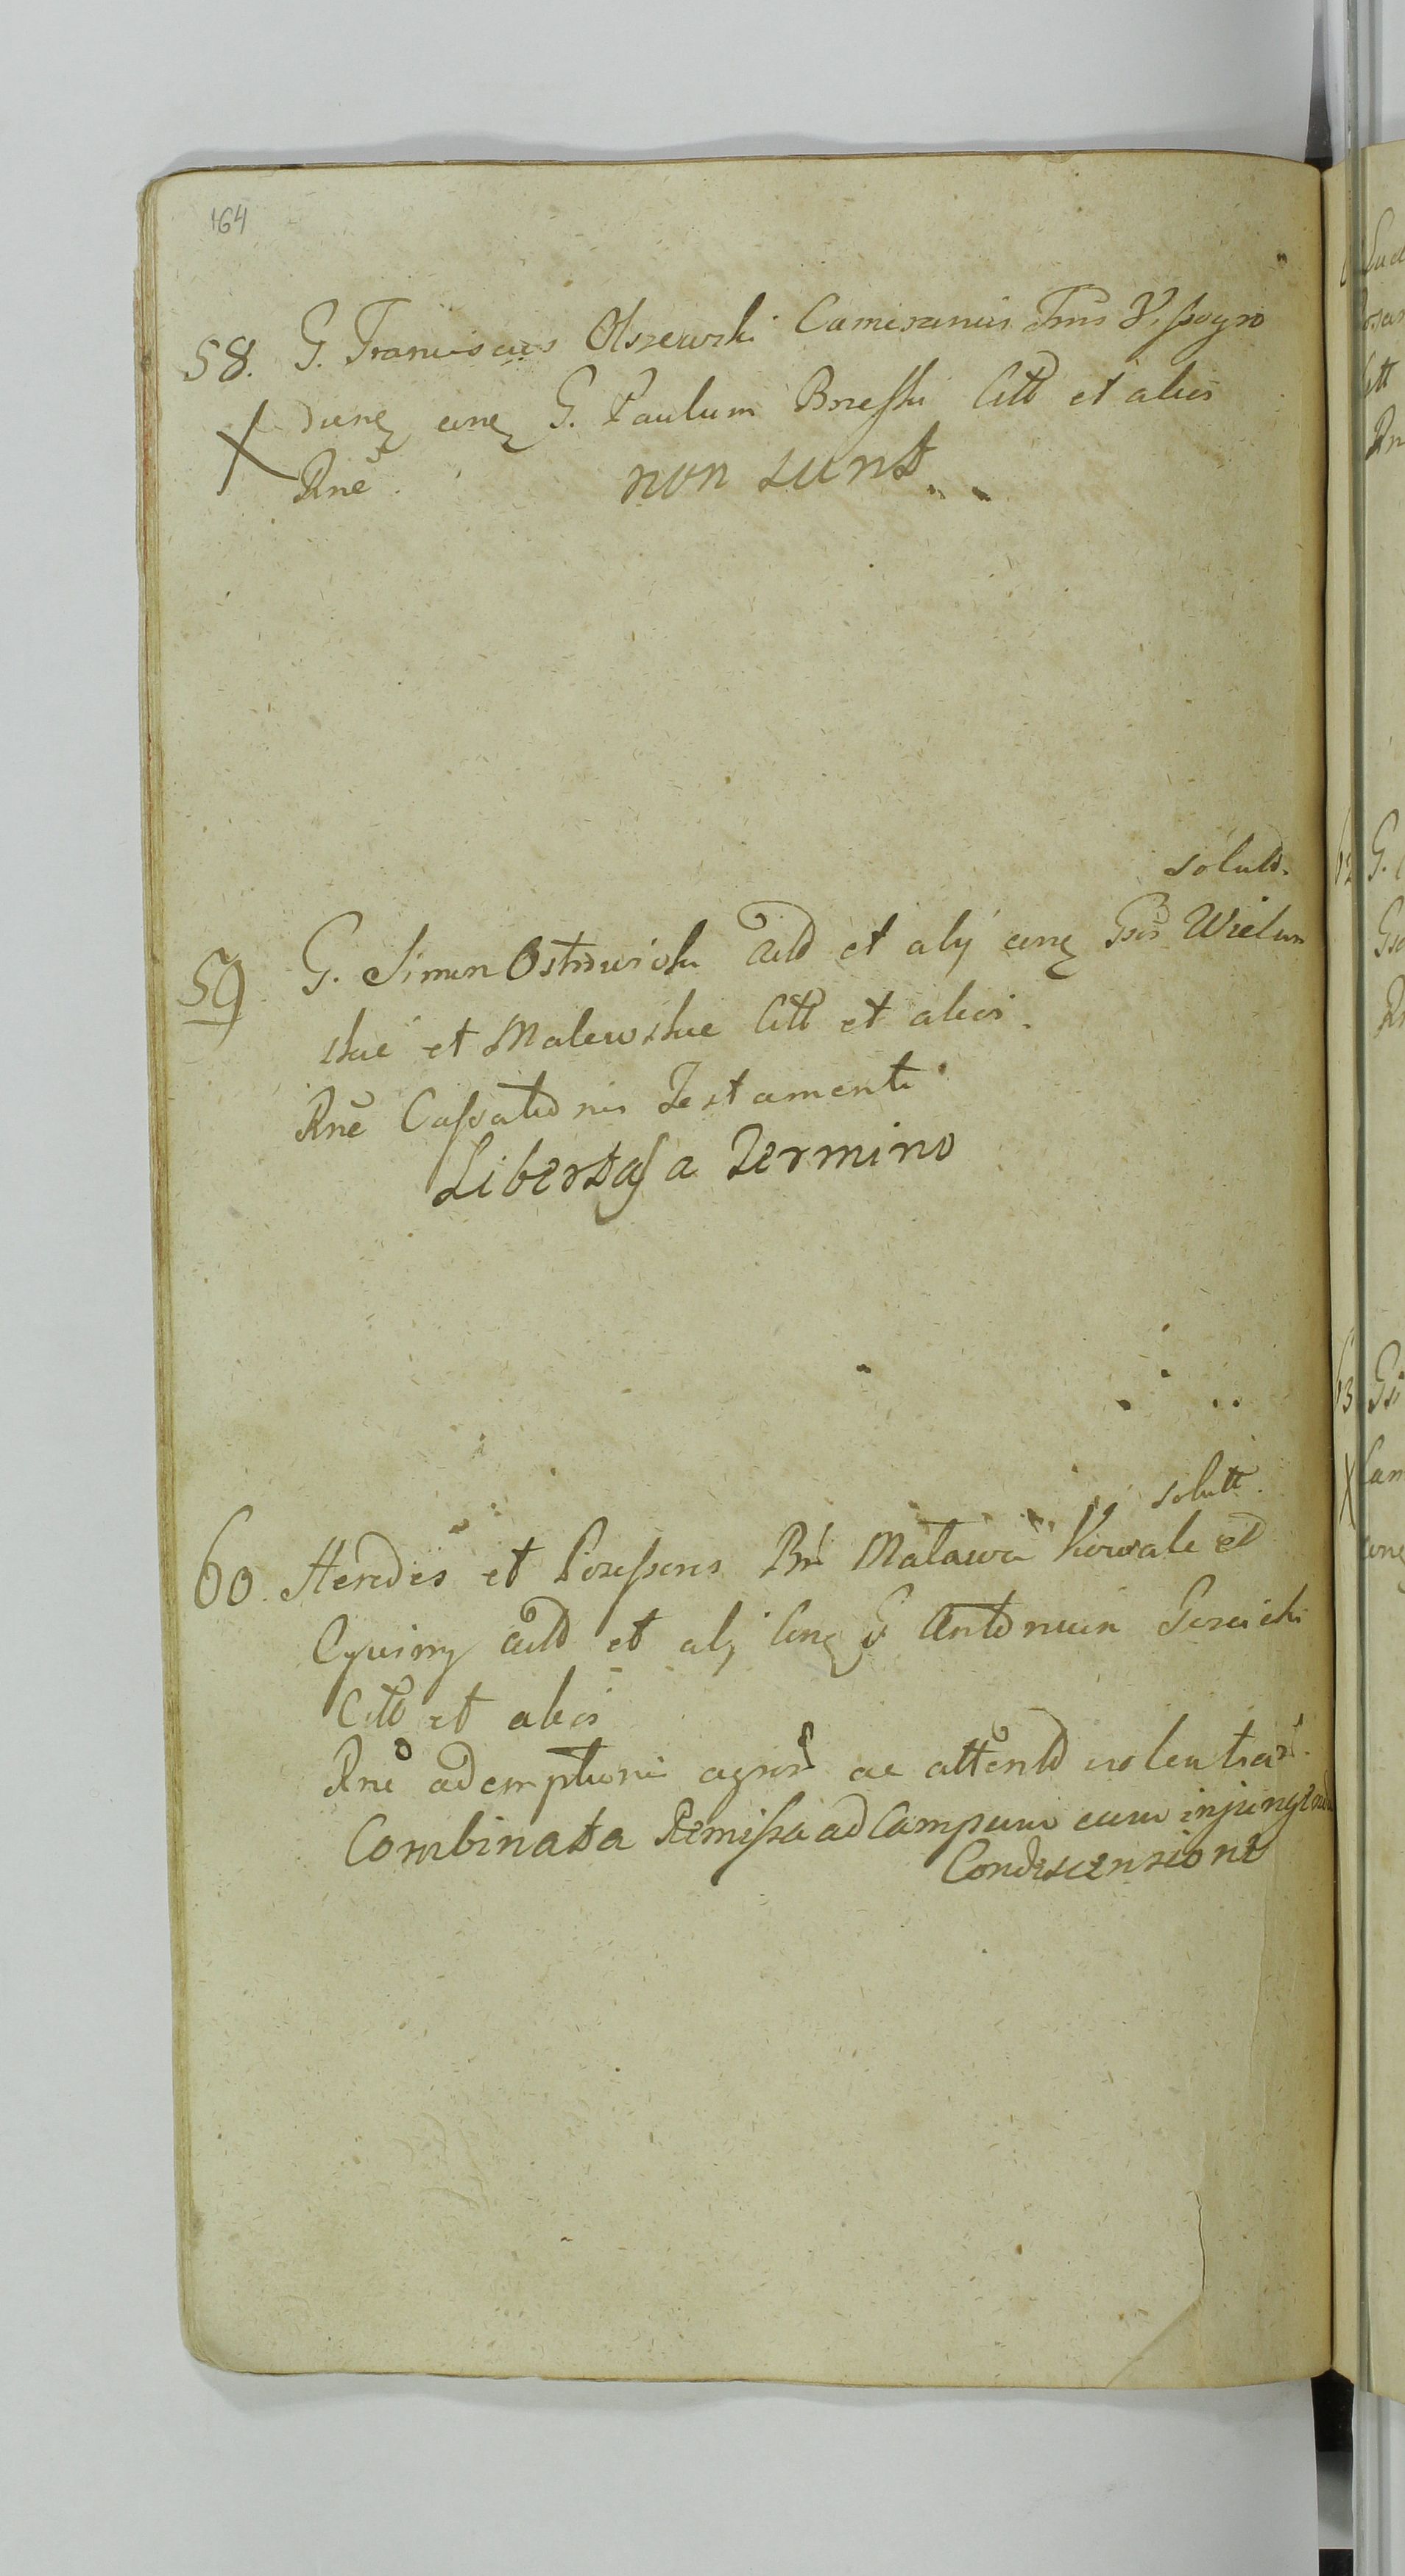 164
58. G. Franciscus Olszewski Camerarius Trrs Visogro
diens cinq G. Paulum Brzeski Citt et alios
Rne.
non sunt
solutt.
59 G. Simon Ostrowski Actt et alij cinq Gsos Wielun
skie et Malewskie Citt et alios.
Rne Cassationis Testamenti
Libertas a Termino
solutt.
60. Heredes et Possessores Bm Malawa Kowale et
actt et alj cinq G Antonium
Citt et alios
Rne ademptionis agror ac attentt violentiar.
Combinata Remissa ad Campum cum injungenda
Condescensione